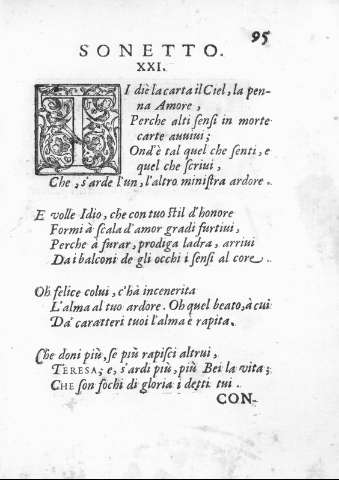 95
SONETTO.
XXI.
TI diè la carta il Ciel, la pen-
na Amore,
Perche alti ſenſi in morte
carte auuiui;
Ond'è tal quel che ſenti, e
quel che ſcriui,
Che, s'arde l'un, l'altro miniſtra ardore.
E volle Idio, che con tuo ſtil d'honore
Formi à ſcala d'amor gradi furtiui,
Perche à furar, prodiga ladra, arriui
Da i balconi de gli occhi i ſenſi al core.
Oh felice colui, c'hà incenerita
L'alma al tuo ardore. Oh quel beato, à cui
Da' caratteri tuoi l'alma è rapita.
Che doni più, ſe più rapiſci altrui,
TERESA; e, s'ardi più, più Bei la vita;
CHE ſon fochi di gloria i detti tui.
CON-